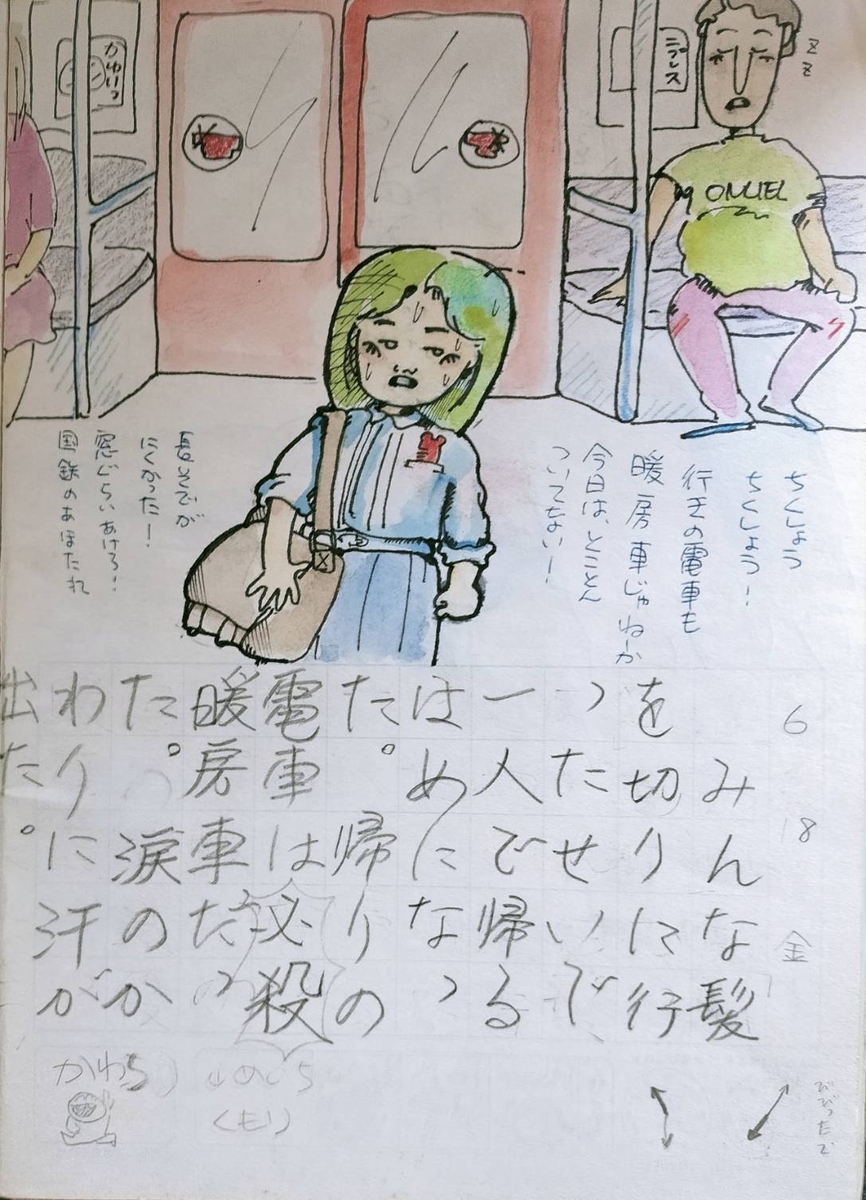 ニプレス
ZZ
ちくしょう
ちくしょう!
行きの電車も
暖房車じゃねーか
今日は、とことん
ついてない!
長そでが
にくかった!
窓ぐらいあけろ!
国鉄のあほたれ
6 18 金
みんな髪
を切りに行
ったせいで
一人で帰る
はめになっ
た。帰りの
電車は必殺
暖房車だっ
た。涙のか
わりに汗が
出た。
びびったで
くもり
かわち